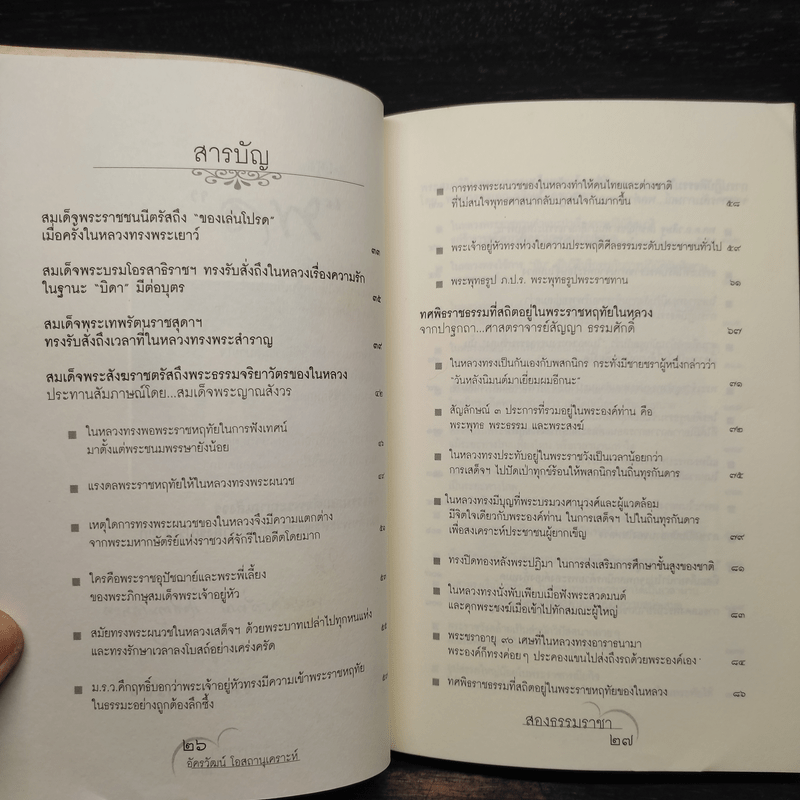 สารบัญ
สมเด็จพระราชชนนีตรัสถึง "ของเล่นโปรด"
เมื่อครั้งในหลวงทรงพระเยาว์
๓๓
สมเด็จพระบรมโอรสาธิราชฯ ทรงรับสั่งถึงในหลวงเรื่องความรัก
ในฐานะ "บิดา" มีต่อบุตร
๓๕
สมเด็จพระเทพรัตนราชสุดาฯ
ทรงรับสั่งถึงเวลาที่ในหลวงทรงพระสำราญ
๓๙
สมเด็จพระสังฆราชตรัสถึงพระธรรมจริยาวัตรของในหลวง
ประทานสัมภาษณ์โดย...สมเด็จพระญาณสังวร
๔๒
ในหลวงทรงพอพระราชหฤทัยในการฟังเทศน์
มาตั้งแต่พระชนมพรรษายังน้อย
แรงดลพระราชหฤทัยให้ในหลวงทรงพระผนวช
เหตุใดการทรงพระผนวชของในหลวงจึงมีความแตกต่าง
จากพระมหากษัตริย์แห่งราชวงศ์จักรีในอดีตโดยมาก
ใครคือพระราชอุปัชฌาย์และพระพี่เลี้ยง
ของพระภิกษุสมเด็จพระเจ้าอยู่หัว
สมัยทรงพระผนวชในหลวงเสด็จฯ ด้วยพระบาทเปล่าไปทุกหนแห่ง
และทรงรักษาเวลาลงโบสถ์อย่างเคร่งครัด
ม.ร.ว.คึกฤทธิ์บอกว่าพระเจ้าอยู่หัวทรงมีความเข้าพระราชหฤทัย
ในธรรมะอย่างถูกต้องลึกซึ้ง
๒๖
อัครวัฒน์ โอสถานุเคราะห์
การทรงพระผนวชของในหลวงทำให้คนไทยและต่างชาติ
ที่ไม่สนใจพุทธศาสนากลับมาสนใจกันมากขึ้น
๕๘
พระเจ้าอยู่หัวทรงห่วงใยความประพฤติศีลธรรมระดับประชาชนทั่วไป ๕๙
พระพุทธรูป ภ.ป.ร. พระพุทธรูปพระราชทาน ๖๑
ทศพิธราชธรรมที่สถิตอยู่ในพระราชหฤทัยในหลวง
จากปาฐกถา...ศาสตราจารย์สัญญา ธรรมศักดิ์ ๖๗
ในหลวงทรงเป็นกันเองกับพสกนิกร กระทั่งมีชายชราผู้หนึ่งกล่าวว่า
"วันหลังนิมนต์มาเยี่ยมผมอีกนะ" ๗๑
สัญลักษณ์ ๓ ประการที่รวมอยู่ในพระองค์ท่าน คือ
พระพุทธ พระธรรม และพระสงฆ์ ๗๒
ในหลวงทรงประทับอยู่ในพระราชวังเป็นเวลาน้อยกว่า
การเสด็จฯ ไปปัดเป่าทุกข์ร้อนให้พสกนิกรในถิ่นทุรกันดาร ๗๕
ในหลวงทรงมีบุญที่พระบรมวงศานุวงศ์และผู้แวดล้อม
มีจิตใจเดียวกับพระองค์ท่าน ในการเสด็จฯ ไปในถิ่นทุรกันดาร
เพื่อสงเคราะห์ประชาชนผู้ยากเข็ญ ๗๙
ทรงปิดทองหลังพระปฏิมา ในการส่งเสริมการศึกษาชั้นสูงของชาติ ๘๑
ในหลวงทรงนั่งพับเพียบเมื่อฟังพระสวดมนต์
และคุกพระชงฆ์เมื่อเข้าไปทักสมณะผู้ใหญ่ ๘๓
พระชราอายุ ๙๐ เศษที่ในหลวงทรงอาราธนามา
พระองค์ก็ทรงค่อยๆ ประคองแขนไปส่งถึงรถด้วยพระองค์เอง ๘๔
ทศพิธราชธรรมที่สถิตอยู่ในพระราชหฤทัยของในหลวง ๘๖
สองธรรมราชา
๒๗